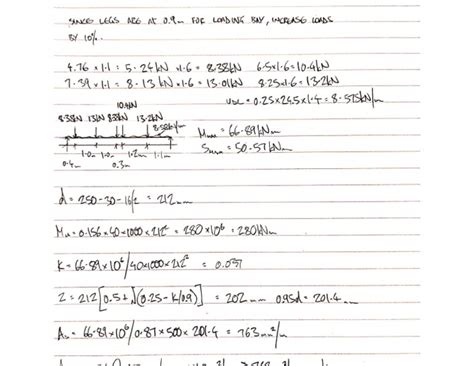 SINCE LEGS ARE AT 0.9m FOR LOADING BAY, INCREASE LOADS
BY 10%.
4.76 x 1.1 = 5.24kN x 1.6 = 8.38kN 6.5x1.6 = 10.4kN
7.39 x 1.1 = 8.13 kN x 1.6 = 13.01kN 8.25x1.6 = 13.2kN
UDL = 0.25x24.5x1.4 = 8.575kN/m
10.4kN
8.38kN 13kN 8.38kN 13.2kN
8.58kN/m
Mmax = 66.89kNm
Smax = 50.57kN
1.0m 1.0m 1.2m 1.1m
0.4m 0.3m
d = 250-30-16/2 = 212mm
Mu = 0.156x40x1000x212² = 280x10⁶ = 280kNm
K = 66.89x10⁶/40x1000x212² = 0.037
Z = 212[0.5+√(0.25-K/0.9)] = 202mm 0.95d = 201.4mm
As = 66.89x10⁶/0.87x500x201.4 = 763mm²/m